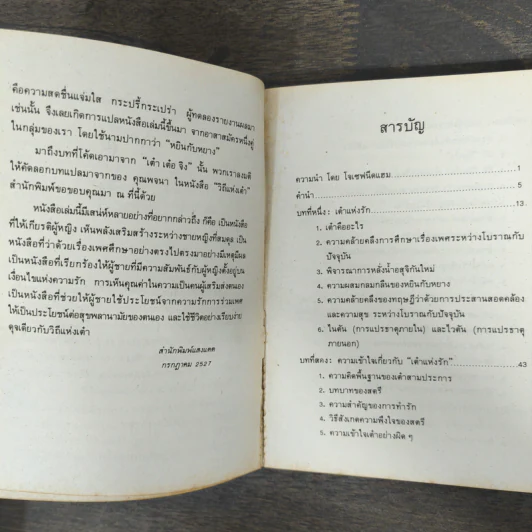 คือความสดชื่นแจ่มใส กระปรี้กระเปร่า ผู้ทดลองรายงานผลมา
เช่นนั้น จึงเลยเกิดการแปลหนังสือเล่มนี้ขึ้นมา จากอาสาสมัครหนึ่งคู่
ในกลุ่มของเรา โดยใช้นามปากกาว่า "หยินกับหยาง"
มาถึงบทที่โค้ตเอามาจาก "เต๋า เต๋อ จิง" นั้น พวกเราลงมติ
ให้คัดลอกบทแปลมาจากของ คุณพจนา ในหนังสือ "วิถีแห่งเต๋า"
สำนักพิมพ์ขอขอบคุณมา ณ ที่นี้ด้วย
หนังสือเล่มนี้มีเสน่ห์หลายอย่างที่อยากกล่าวถึง ก็คือ เป็นหนังสือ
ที่ให้เกียรติผู้หญิง เห็นพลังเสริมสร้างระหว่างชายหญิงที่สมดุล เป็น
หนังสือที่ว่าด้วยเรื่องเพศศึกษาอย่างตรงไปตรงมาอย่างมีเหตุมีผล
เป็นหนังสือที่เรียกร้องให้ผู้ชายที่มีความสัมพันธ์กับผู้หญิงตั้งอยู่บน
เงื่อนไขแห่งความรัก การเห็นคุณค่าในความเป็นคนผู้เสริมส่งตนเอง
เป็นหนังสือที่ช่วยให้ผู้ชายใช้ประโยชน์จากความรักการร่วมเพศ
ให้เป็นประโยชน์ต่อสุขพลานามัยของตนเอง และใช้ชีวิตอย่างเรียบง่าย
ดุจเดียวกับวิถีแห่งเต๋า
สำนักพิมพ์แสงแดด
กรกฎาคม 2527
สารบัญ
ความนำ โดย โจเซฟนีดแฮม 1
คำนำ 5
บทที่หนึ่ง : เต๋าแห่งรัก 13
1. เต๋าคืออะไร
2. ความคล้ายคลึงการศึกษาเรื่องเพศระหว่างโบราณกับ
ปัจจุบัน
3. พิจารณาการหลั่งน้ำอสุจิกันใหม่
4. ความผสมกลมกลืนของหยินกับหยาง
5. ความคล้ายคลึงของทฤษฎีว่าด้วยการประสานสอดคล้อง
และความสุข ระหว่างโบราณกับปัจจุบัน
6. ไนตัน (การแปรธาตุภายใน) และไวตัน (การแปรธาตุ
ภายนอก)
บทที่สอง : ความเข้าใจเกี่ยวกับ "เต๋าแห่งรัก" 43
1. ความคิดพื้นฐานของเต๋าสามประการ
2. บทบาทของสตรี
3. ความสำคัญของการทำรัก
4. วิธีสังเกตความพึงใจของสตรี
5. ความเข้าใจเต๋าอย่างผิด ๆ